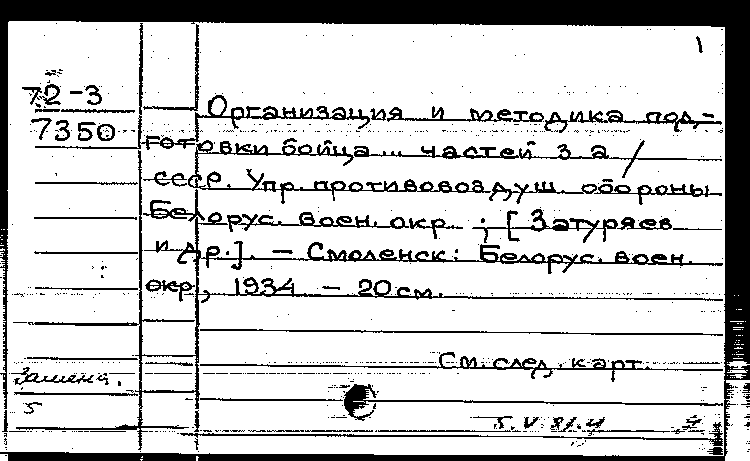 1
72-3
7350
Организация и методика под-
готовки бойца ... частей З а /
СССР. Упр. противовоздуш. обороны
Белорус. воен. окр. ; [Затуряев
и др.]. — Смоленск : Белорус. воен.
окр., 1934 — 20 см.
См. след. карт.
Замена.
5
5.V.81.